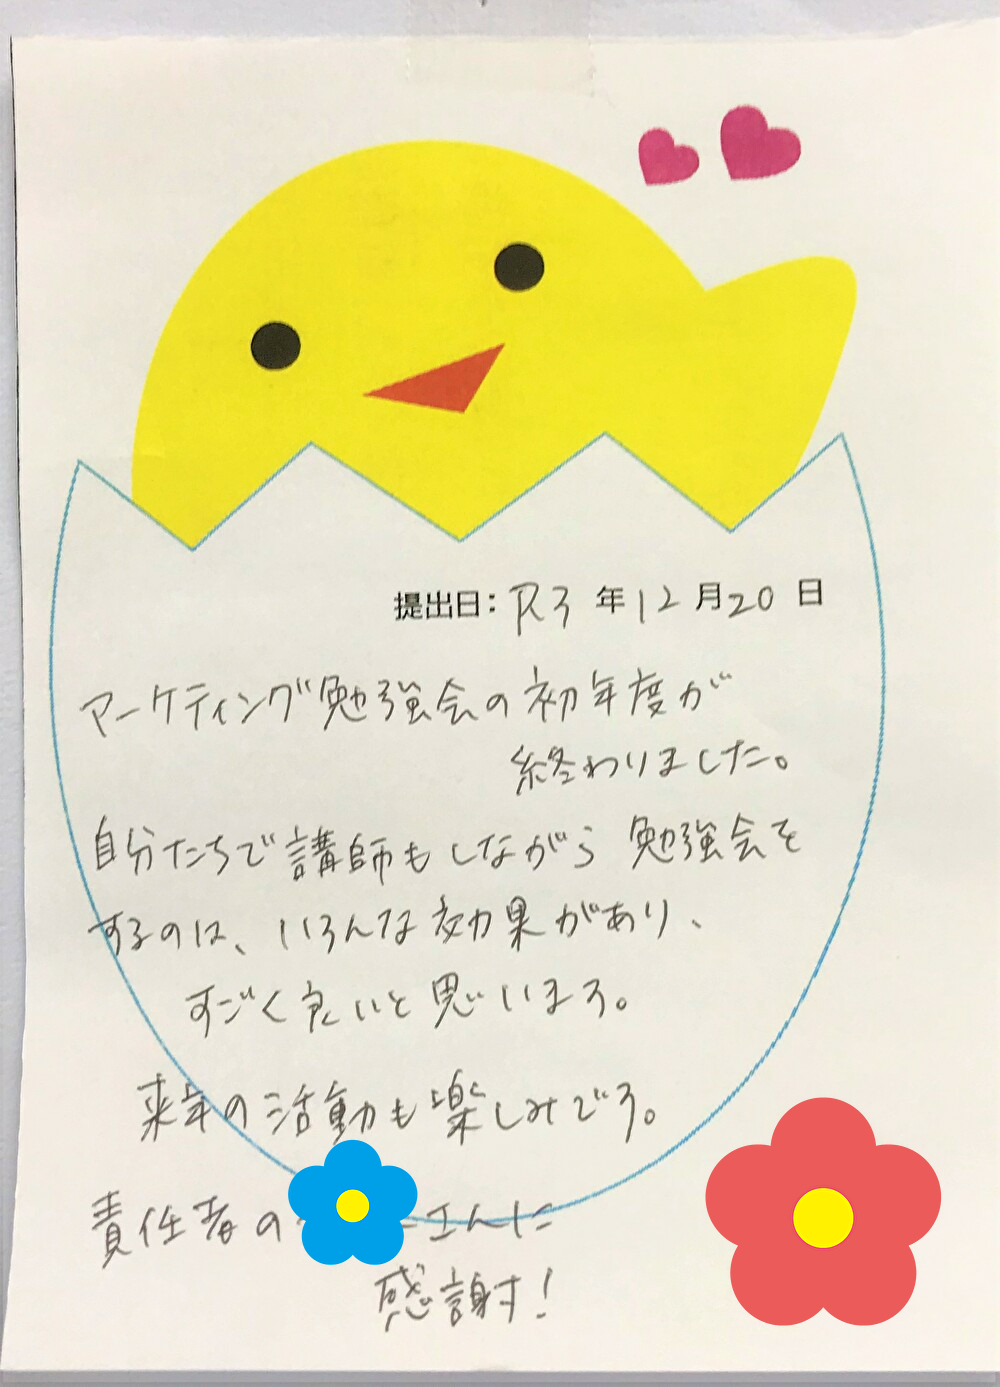 提出日: R3 年 12 月 20 日
マーケティング勉強会の初年度が
終わりました。
自分たちで講師もしながら 勉強会を
するのは、いろんな効果があり、
すごく良いと思います。
来年の活動も楽しみです。
責任者の さんに
感謝!